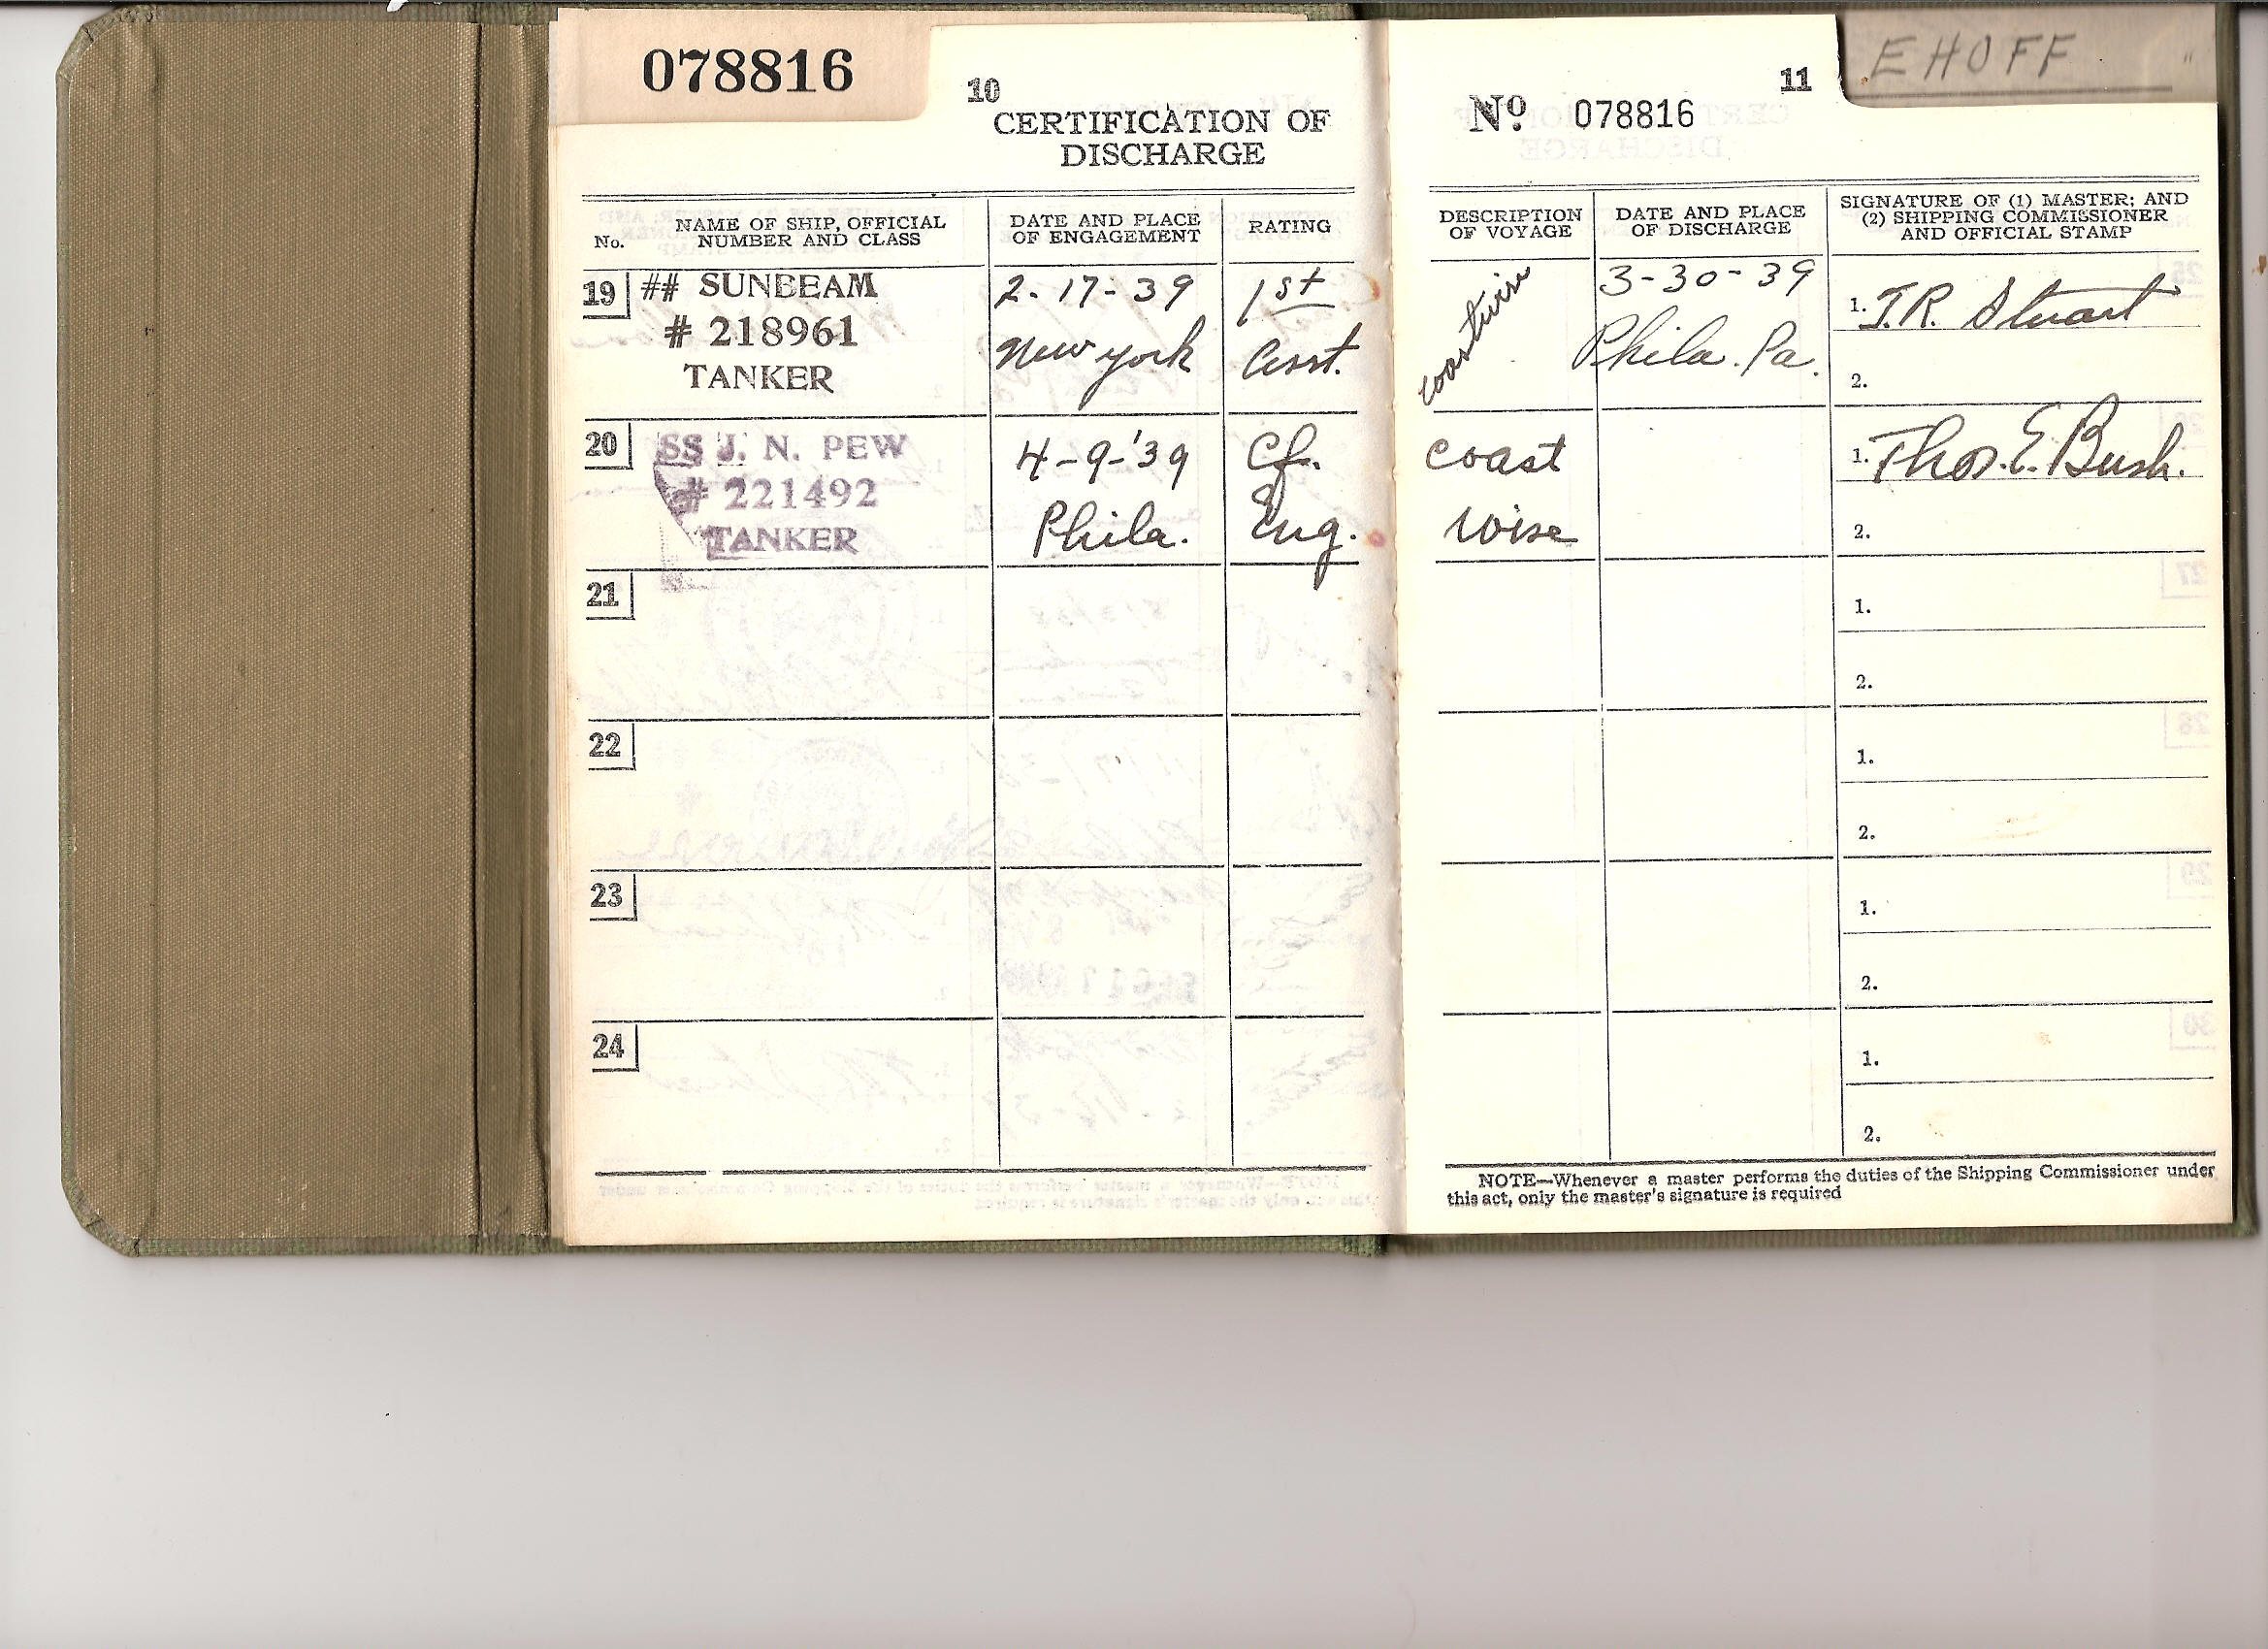 078816
10
CERTIFICATION OF
DISCHARGE
No.
NAME OF SHIP, OFFICIAL
NUMBER AND CLASS
DATE AND PLACE
OF ENGAGEMENT
RATING
19
## SUNBEAM
# 218961
TANKER
2-17-39
New York
1st
Asst.
20
SS J. N. PEW
# 221492
TANKER
4-9-'39
Phila.
Cf.
Eng.
21
22
23
24
EHOFF "
11
Nº 078816
DESCRIPTION
OF VOYAGE
DATE AND PLACE
OF DISCHARGE
SIGNATURE OF (1) MASTER; AND
(2) SHIPPING COMMISSIONER
AND OFFICIAL STAMP
coastwise
3-30-39
Phila. Pa.
1. J.R. Stuart
2.
coast
wise
1. Thos. E. Bush.
2.
1.
2.
1.
2.
1.
2.
1.
2.
NOTE—Whenever a master performs the duties of the Shipping Commissioner under
this act, only the master's signature is required